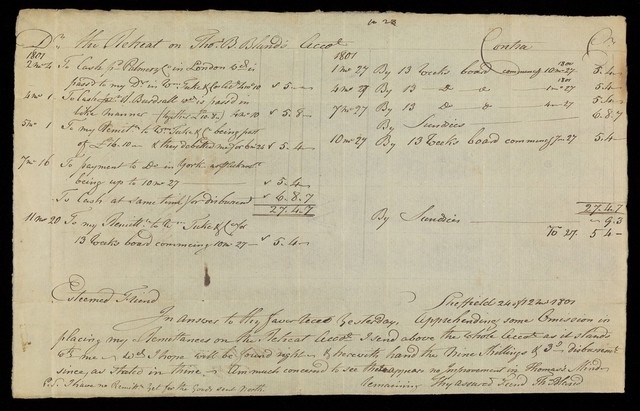 Dr. The Retreat on Thos. B. Bland's Accot. Contra Cr.
1801 1801
2 mo 4 To Cash pr. & Co in London wch is
pass'd to my Dr. in Wm. Tuke & Co 10 5 ..
4 mo 1 To Cash pr. wch is pass'd in
like manner 10 5.. 8
5 mo 1 To my Remitt. to Wm. Tuke & Co being part
of & they debited me for 5.. 4
7 mo 16 To payment to Do in York
being up to 10 mo 27 5.. 4
To Cash at same time for disbursemts. 6.. 8.. 7
27.. 4.. 7
11 mo 20 To my Remitt. to Wm. Tuke & Co for
13 Weeks board commencing 10 mo 27 5.. 4
1 mo 27 By 13 Weeks board commencing 10 mo 27 1800 5.. 4
4 mo 27 By 13 Do Do 1 mo 27 1801 5.. 4
7 mo 27 By 13 Do Do 4 mo 27 5.. 4
By Sundries 6.. 8.. 7
10 mo 27 By 13 Weeks board commencg 7 mo 27 5.. 4
27.. 4.. 7
By Sundries 9.. 3
10 mo 27. 5.. 4
Esteemed Friend Sheffield 24 of 12 mo 1801
In answer to thy favor recd. Yesterday. Apprehending some Omission in
placing my Remittances on the Retreat Accot. I send above the whole Accot. as it stands
wth me — wch I hope will be found right — & herewith hand the Nine Shillings & 3d. disbursemts.
since, as stated in thine — Am much concern'd to see there appears no Improvement in Thomas's Mind —
Remaining Thy assured Friend Thos. Bland
P.S. I have no Remitt. yet for the Goods sent North.